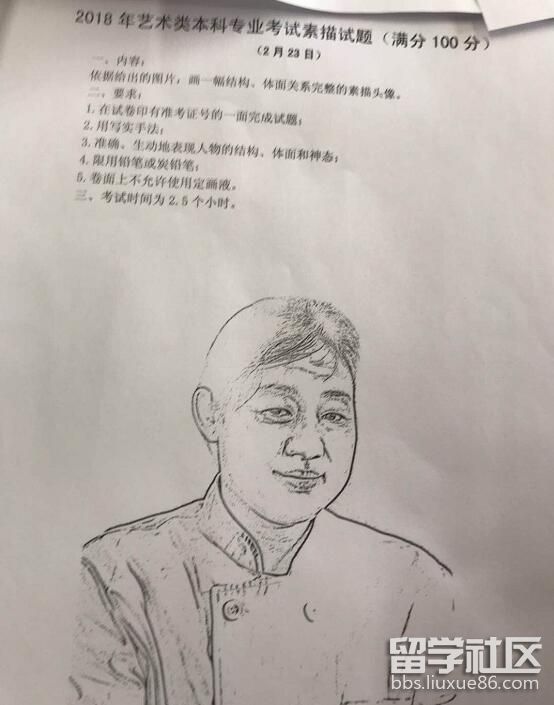 2018年艺术类本科专业考试素描试题（满分100分）
（2月23日）
一、内容：
依据给出的图片，画一幅结构、体面关系完整的素描头像。
二、要求：
1.在试卷印有准考证号的一面完成试题；
2.用写实手法；
3.准确、生动地表现人物的结构、体面和神态；
4.限用铅笔或炭铅笔；
5.卷面上不允许使用定画液。
三、考试时间为2.5个小时。
留学社区
bbs.liuxue86.com